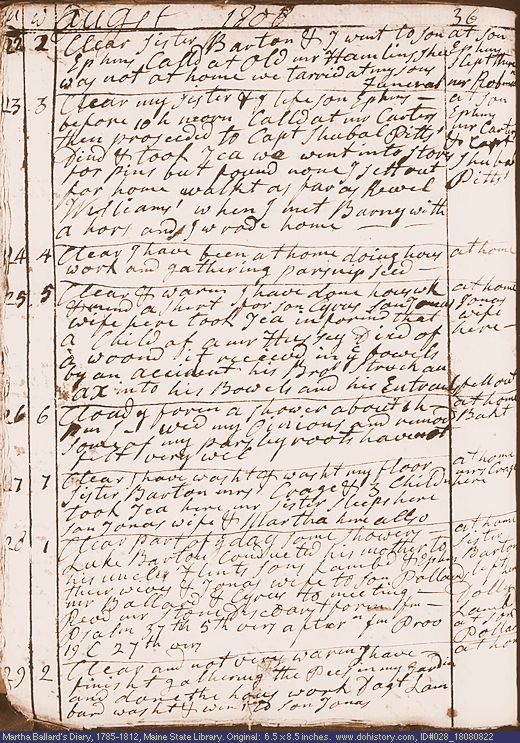 m w August 1808 36
22 2 Clear Sister Barton & I went to son at son
Ephms Calld at Old mr Hamlins Shee Ephms
was not at home we tarrid at my sons Slept there
Funeral mr Robn
23 3 Clear my Sister & I left son Ephms — at son
before 10 h morn Calld at mr Carters Ephms
then proseeded to Capt Shubal Pitts' mr Carter
Dind & took Tea we went into Stors & Capt
for pins but found none I sett out Shubal
for home walkt as far as Rewel Pitts'
Williams' when I met Barny with
a hors and I wrode home —
24 4 Clear I have been at home doing hous at home
work and gathering parsnip seed —
25 5 Clear & warm I have done hous wk at home
& mend a shirt for son Cyrus son Jonas Jonas
wife here took Tea informd that wife
a Child of a mr Hussey Died of here —
a woond it receevd in its bowels
by an accident his Bror Struck an
ax into his Bowels and his Entrans
26 6 Cloudy foren a shower about 1 h at home
pm I wed my Onions and removd Bakt
some of my parsley roots have not
felt very well
27 7 Clear I have washt & washt my floor at home
Sister Barton mrs Crage & 3 Childn mrs Crage
took Tea here my Sister Sleeps here here
son Jonas wife & Martha here allso
28 1 Clear Part of y day some showers at home
Luke Barton Conducted his mother to Sister
his uncle sons Lambd & Ephm Barton
their wives & Jonas wife to son Pollard
mr Ballard & Cyrus to meeting —
Revd mr discoarst foren fm Lambd
Psalm 37 th 5th vers aftern fm Prov at son
19 C 27th vers Pollard
29 2 Clear am not very warm I have at home
finisht gathering the Pees in my gardin
and done the hous work Dagt Lam
bard washt & went to son Jonas
Martha Ballard's Diary, 1785-1812, Maine State Library. Original: 6.5 x 8.5 inches. www.dohistory.com, ID#028_18080822